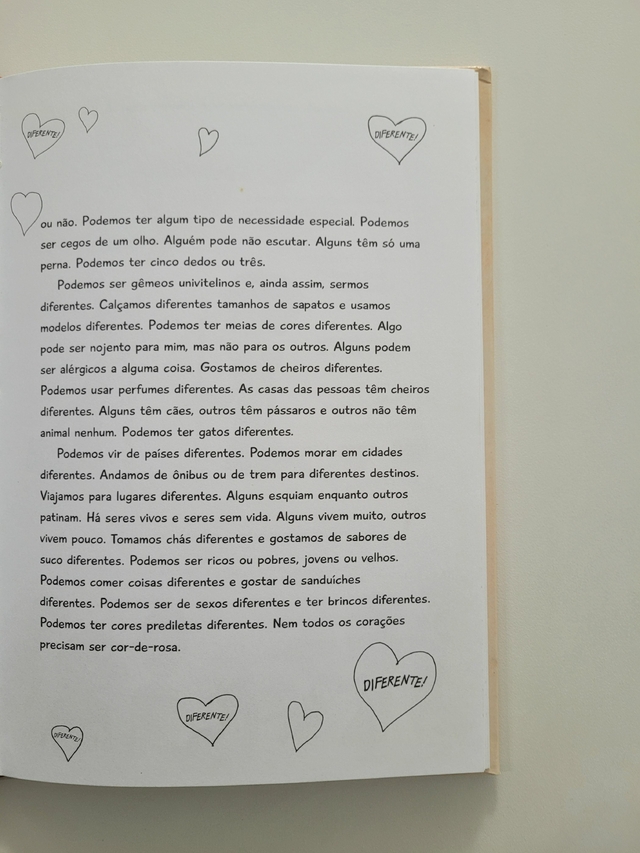 DIFERENTE!
DIFERENTE!
ou não. Podemos ter algum tipo de necessidade especial. Podemos
ser cegos de um olho. Alguém pode não escutar. Alguns têm só uma
perna. Podemos ter cinco dedos ou três.
Podemos ser gêmeos univitelinos e, ainda assim, sermos
diferentes. Calçamos diferentes tamanhos de sapatos e usamos
modelos diferentes. Podemos ter meias de cores diferentes. Algo
pode ser nojento para mim, mas não para os outros. Alguns podem
ser alérgicos a alguma coisa. Gostamos de cheiros diferentes.
Podemos usar perfumes diferentes. As casas das pessoas têm cheiros
diferentes. Alguns têm cães, outros têm pássaros e outros não têm
animal nenhum. Podemos ter gatos diferentes.
Podemos vir de países diferentes. Podemos morar em cidades
diferentes. Andamos de ônibus ou de trem para diferentes destinos.
Viajamos para lugares diferentes. Alguns esquiam enquanto outros
patinam. Há seres vivos e seres sem vida. Alguns vivem muito, outros
vivem pouco. Tomamos chás diferentes e gostamos de sabores de
suco diferentes. Podemos ser ricos ou pobres, jovens ou velhos.
Podemos comer coisas diferentes e gostar de sanduíches
diferentes. Podemos ser de sexos diferentes e ter brincos diferentes.
Podemos ter cores prediletas diferentes. Nem todos os corações
precisam ser cor-de-rosa.
DIFERENTE!
DIFERENTE!
DIFERENTE!